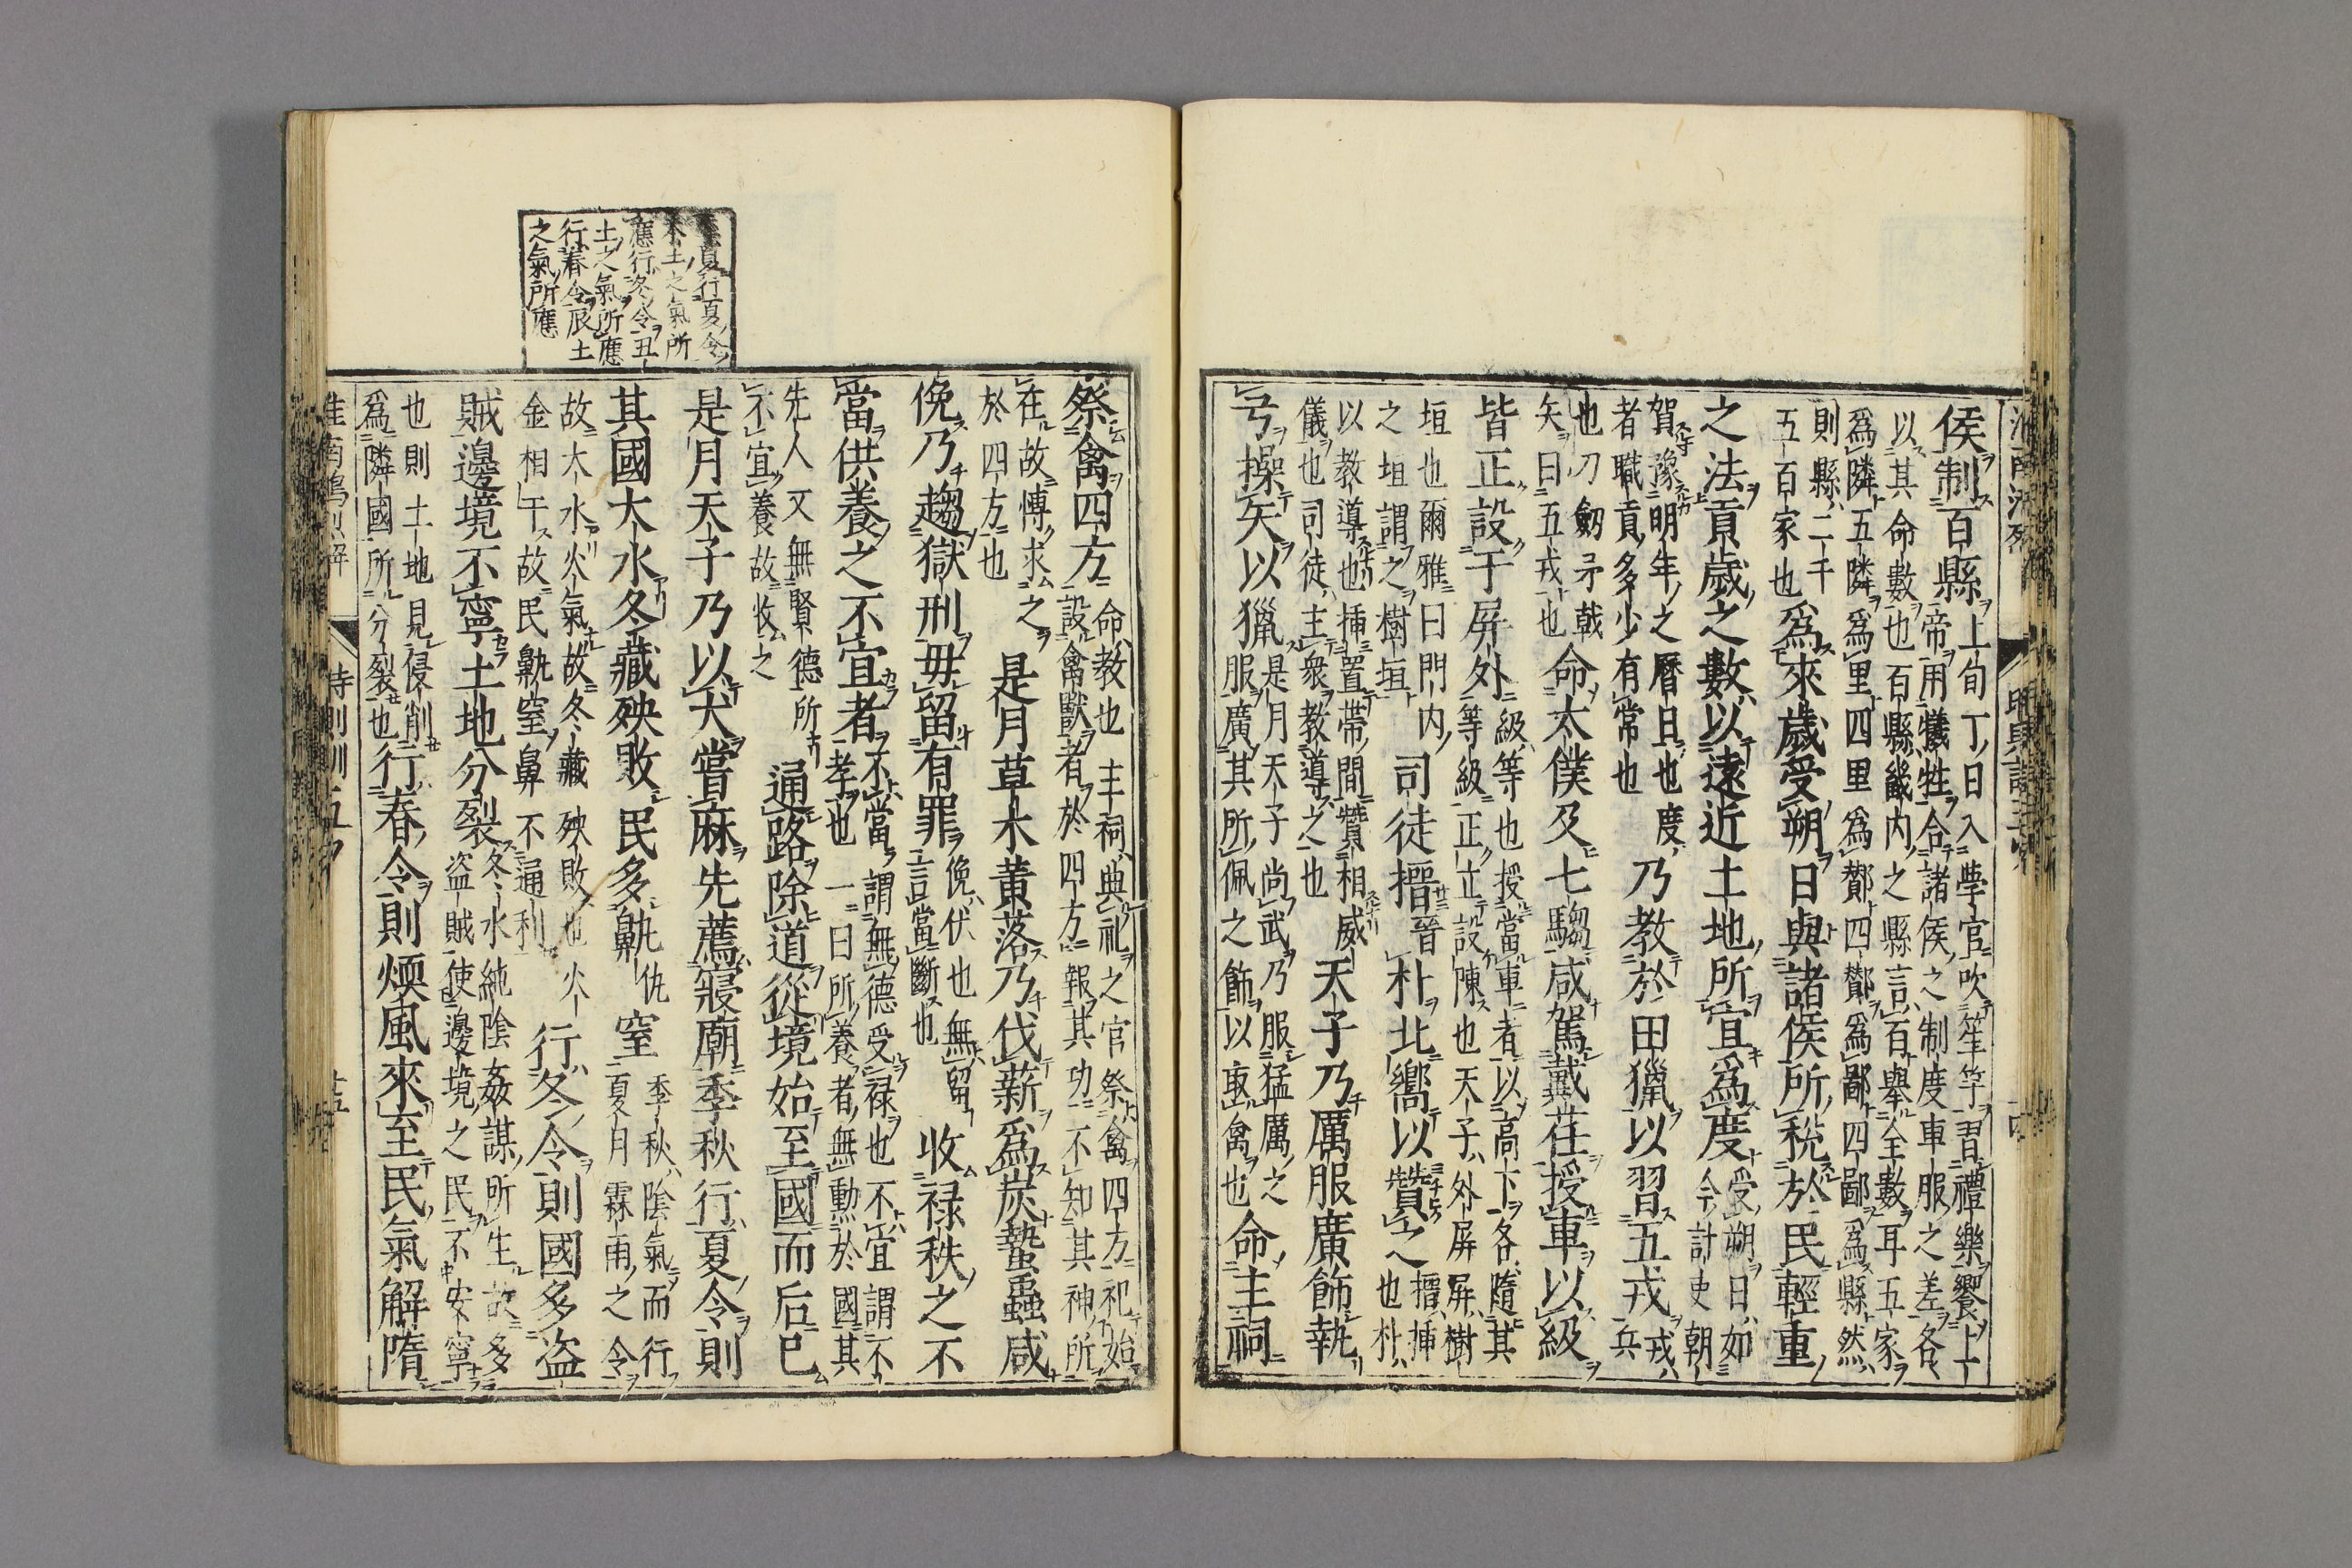 侯制百縣
上旬丁日入學官吹笙竽習禮樂饗上
帝用犧牲合諸侯之制度車服之差各
以其命數也百縣畿内之縣言百舉全數耳五家
爲隣五隣爲里四里爲酇四酇爲鄙四鄙爲縣然
則縣二千
五百家也
爲來歲受朔日與諸侯所稅於民輕重
之法貢歲之數以遠近土地所宜爲度
受朔日如
今計吏朝
賀豫明年之曆日也度
者職貢多少有常也
乃教於田獵以習五戎
戎
兵
也刀劒矛戟
矢曰五戎也
命太僕及七騶咸駕戴荏授車以級
皆正設于屏外
級等也授當車者以高卞各隨其
等級正立設陳也天子外屏屏樹
垣也爾雅曰門内
之垣謂之樹垣
司徒搢晉朴北嚮以贊之
搢插
也朴
以教導也插置帶間贊相威
儀也司徒主衆教導之也
天子乃厲服廣飾執
弓操矢以獵
是月天子尚武乃服猛厲之
服廣其所佩之飾以取禽也
命主祠
祭禽四方
命教也主祠典祀之官祭禽四方祀始
設禽獸者於四方報其功不知其神所
在故慱求之
於四方也
是月草木黄落乃伐薪爲炭蟄蟲咸
俛乃趨獄刑毋留有罪
俛伏也無留
言當斷也
收禄秩之不
當供養之不宜者
不當謂無德受禄也不宜謂不
孝也一曰所養者無勳於國其
先人又無賢德所
不宜養故收之
通路除道從境始至國而后已
是月天子乃以犬嘗麻先薦寢廟季秋行夏令則
其國大水冬藏殃敗民多鼽仇窒
季秋陰氣而行
夏月霖雨之令
故大水火氣故冬藏殃敗也火
金相干故民鼽窒鼻不通利
行冬令則國多盗
賊邊境不寧土地分裂
冬水純陰姦謀所生故多
盗賊使邊境之民不安寧
也則土地見侵削
爲隣國所分裂也
行春令則煖風來至民氣解隋
夏行夏令
本土之氣所
應行冬令丑
土之氣所應
行春令辰土
之氣所應
時則訓五